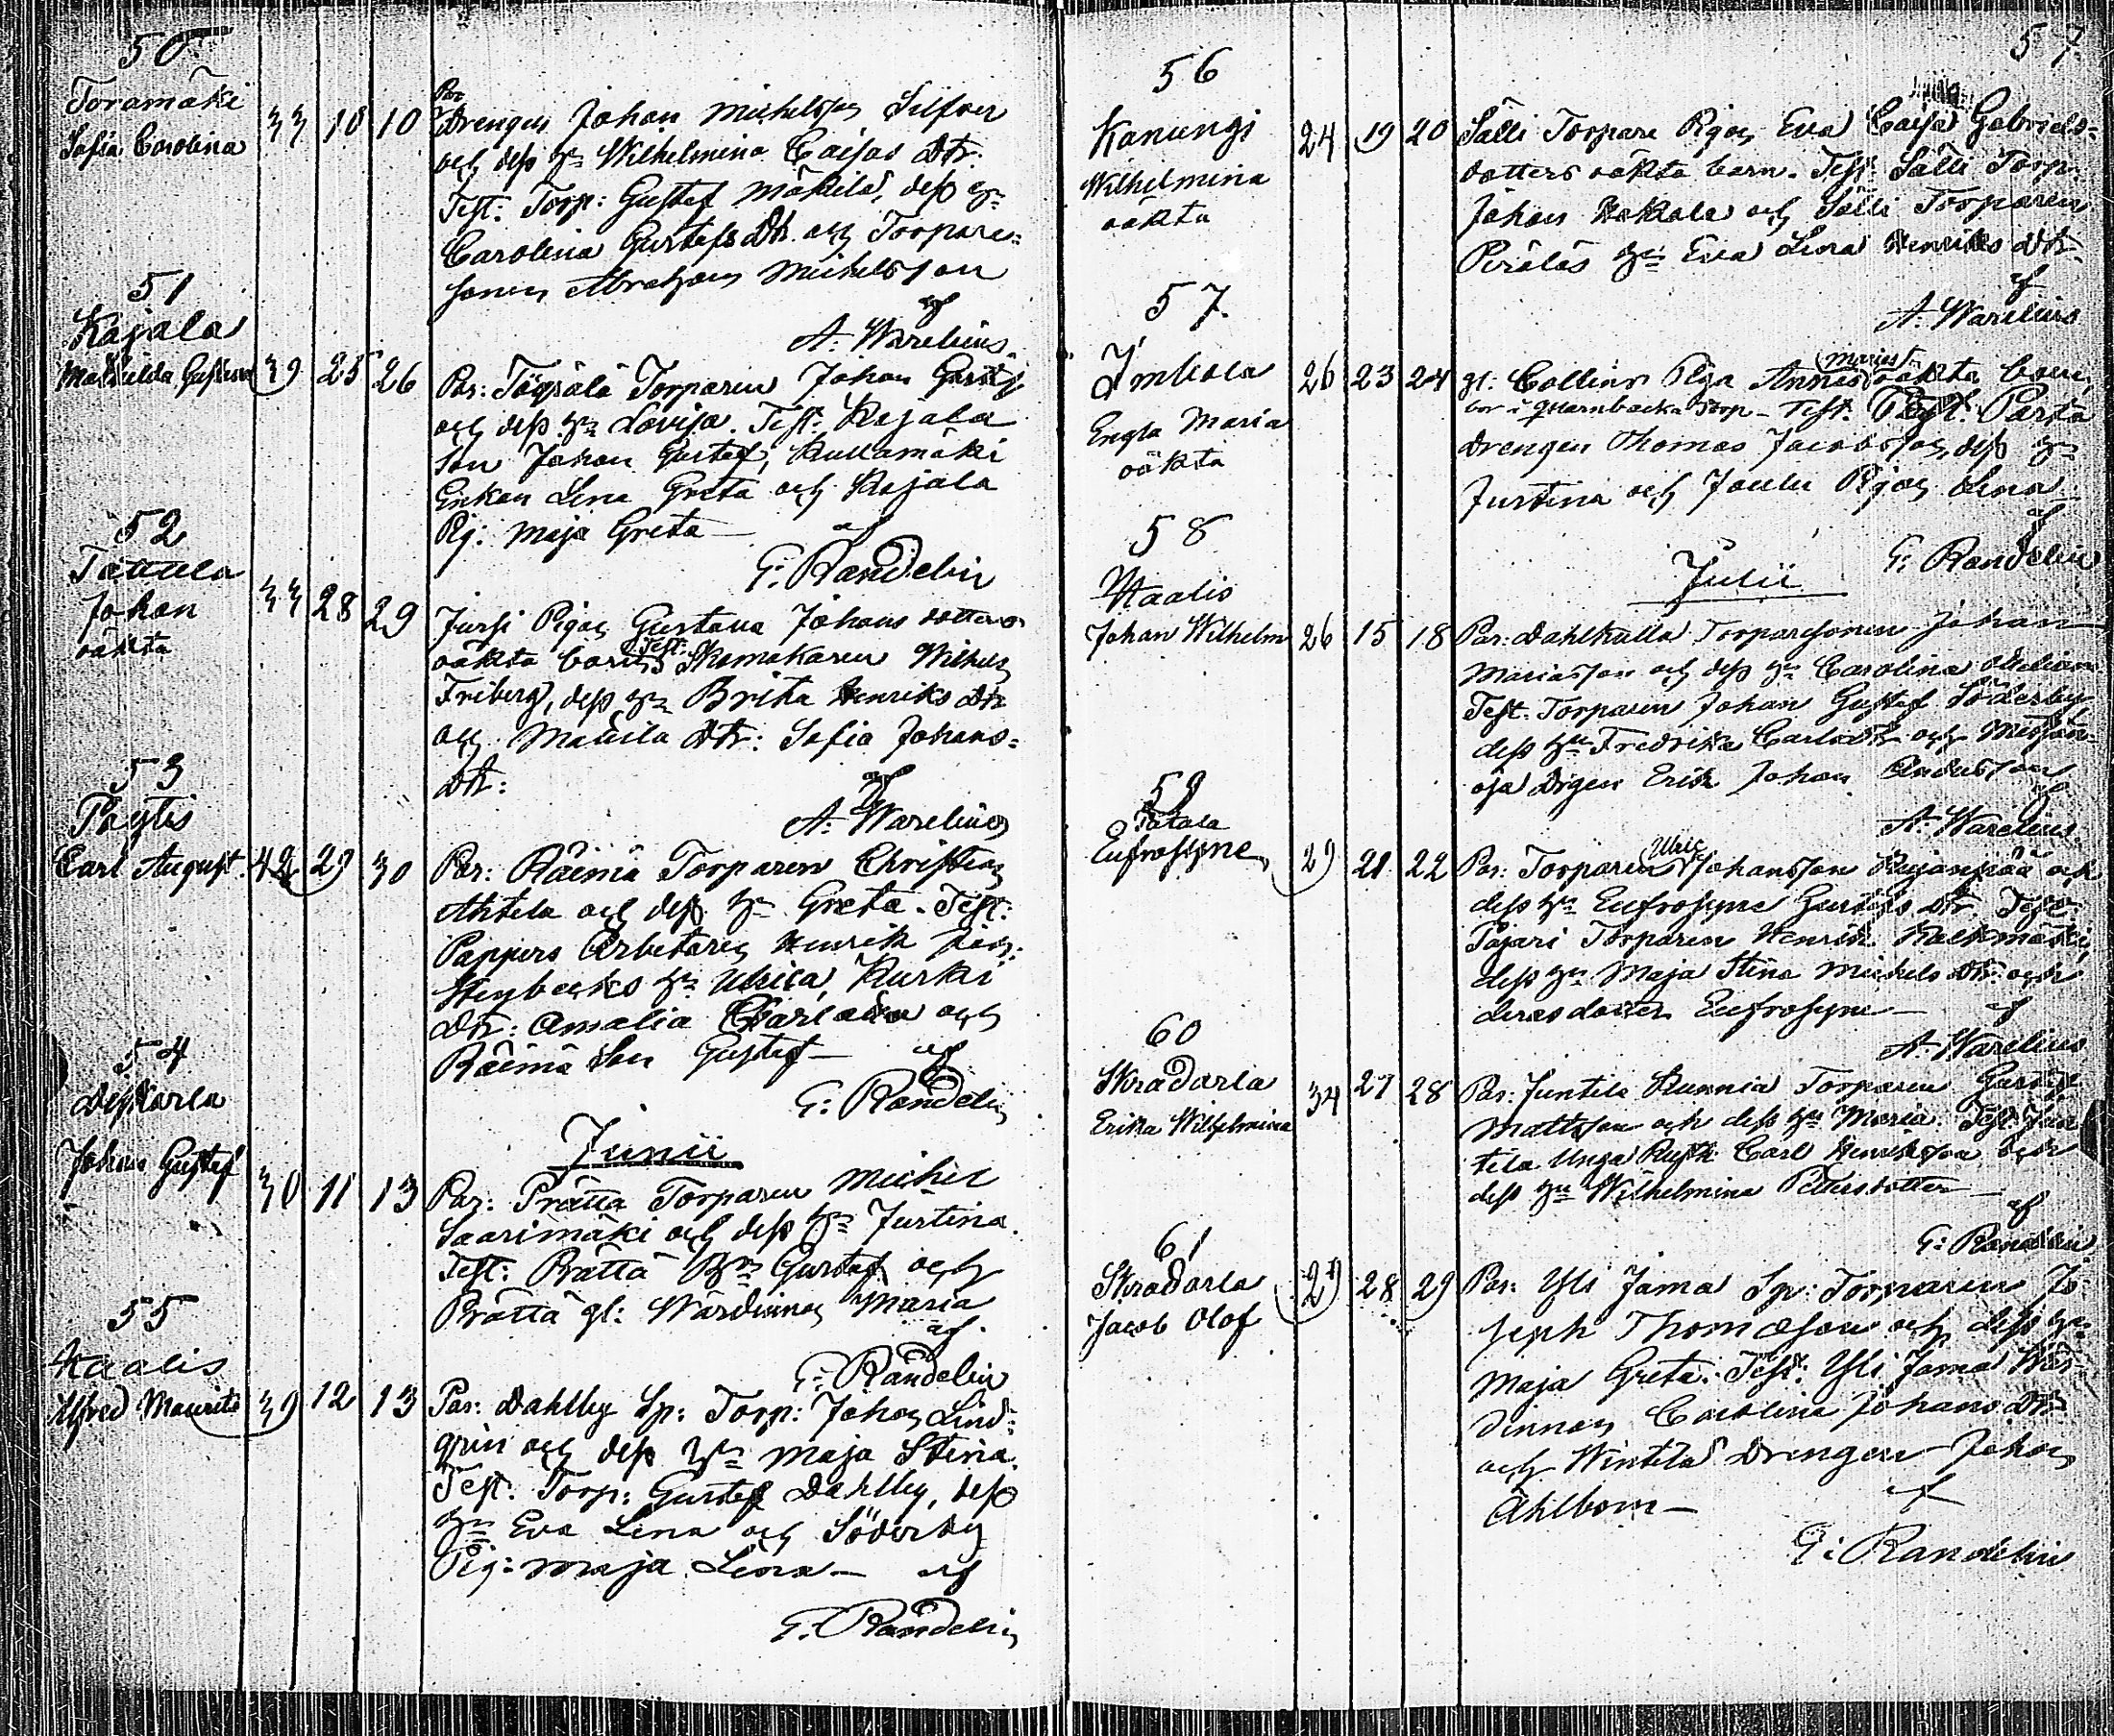 50
Toramäki
Sofia Carolina
33 10 10
Par
Drengen Johan Michelsson Silfver
och dess Wilhelmina Caisas Dtr:
Test: Torp: Gustaf Mäkilä, dess
Carolina Gustafs Dtr. och Torpare=
sonen Abraham Michelsson
af
A: Warelius.
51
Kajala
Mathilda Gustava
39 25 26
Par: Torparen Johan Gustaf
och dess Lovisa. Test: Kajala
Son Johan Gustaf, Kullamäki
Enkan Lena Greta och Kajala
Pig: Maja Greta —
af
G: Randelin
52
Tattula
Johan
oäkta
33 28 29
Jussi Pigan Gustava Johans dotters
oäkta barn Test: Skomakaren Wilhelm
Friberg, dess Brita Henriks Dtr
och Mattila Dtr: Sofia Johans=
Dtr:
af
A: Warelius
53
Päytis
Carl August.
42 29 30
Par: Räimä Torparen Christian
Ahtela och dess Greta. Test:
Pappers Arbetaren Henrik
Stenbecks Ulrica, Kurki
Dtr: Amalia och
Räimä Son Gustaf —
af
G: Randelin
54
Johan Gustaf
Junii
30 11 13
Par: Prättä Torparen Michel
Saarimäki och dess Justina.
Test: Prättä Gustaf och
Prättä gl: Wärdinnan Maria
af
G: Randelin
55
Kaalis
Alfred Maurits
39 12 13
Par: Dahlby Sp: Torp: Johan Lind=
grén och dess Maja Stina.
Test: Torp: Gustaf Dahlby, dess
Eva Lena och Söderby
Pig: Maja Lena —
af
G. Randelin
57.
56
Kanungi
Wilhelmina
oäkta
24 19 20
Sälli Torpare Pigan Eva Caisa Gabriels=
dotters oäkta barn. Test: Sälli Torp.
Johan Hakala och Sälli Torparen
Peräläs Eva Lena Henriks Dtr.
af
A: Warelius
57.
Engla Maria
oäkta
26 23 24
gl: Collins Piga Annas oäkta barn,
bor i Qvarnbacka Torp — Test:
Drengen Thomas Jacobsson, dess
Justina och Pigan Lena
af
G: Randelin
Julii
58
Kaalis
Johan Wilhelm
26 15 18
Par: Dahlkulla Torparesonen Johan
Mariasson och dess Carolina
Test: Torparen Johan Gustaf Söderby,
dess Fredrika Carls Dtr och
oja Drgen Erik Johan Andersson
af
A: Warelius
59
Tatala
Eufrosyne
29 21 22
Par: Torparen Johansson och
dess Eufrosyne Gustafs Dtr. Test:
Pajari Torparen Henrik
dess Maja Stina Michels Dtr. och
deras dotter Eufrosyne —
af
A: Warelius
60
Skradarla
Erika Wilhelmina
34 27 28
Par: Juntila Runnia Torparen Gustaf
Mattsson och dess Maria. Test: Jun
tila Unga Rusth: Carl Henriksson och
dess Wilhelmina Pettersdotter —
af
G: Randelin
61
Skradarla
Jacob Olof
29 28 29
Par: Yli Jama Sp: Torparen Jo=
seph Thomasson och dess
Maja Greta. Test: Yli Jama Wär=
dinnan Carolina Johans Dtr.
och Wintela Drengen Johan
Ahlbom —
af
G: Randelin